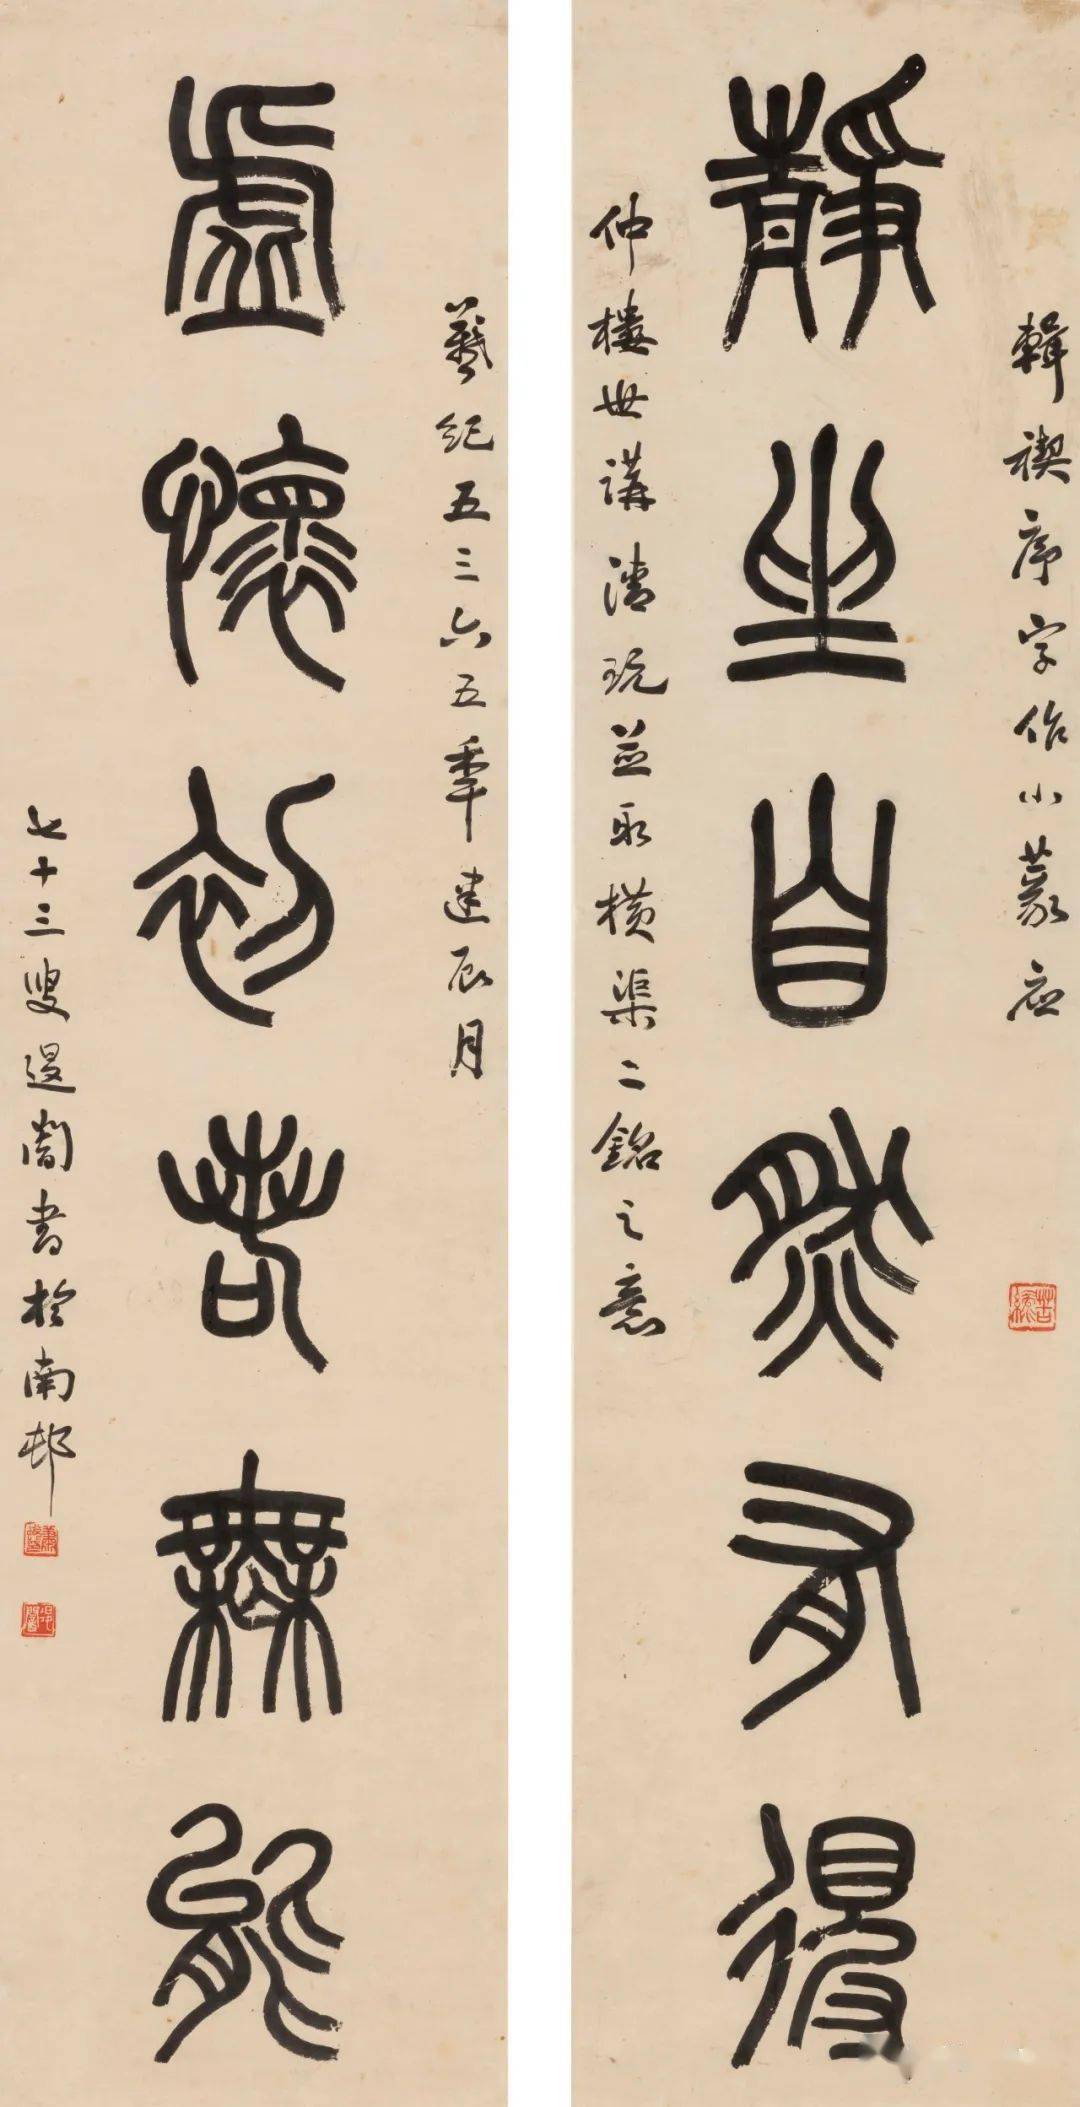 輯禊序字作小篆應
靜坐自然有得
仲樓世講清玩並取橫渠二銘之意
羲紀五三六五年建辰月
虛懷初若無能
七十三叟退闇書於南邨